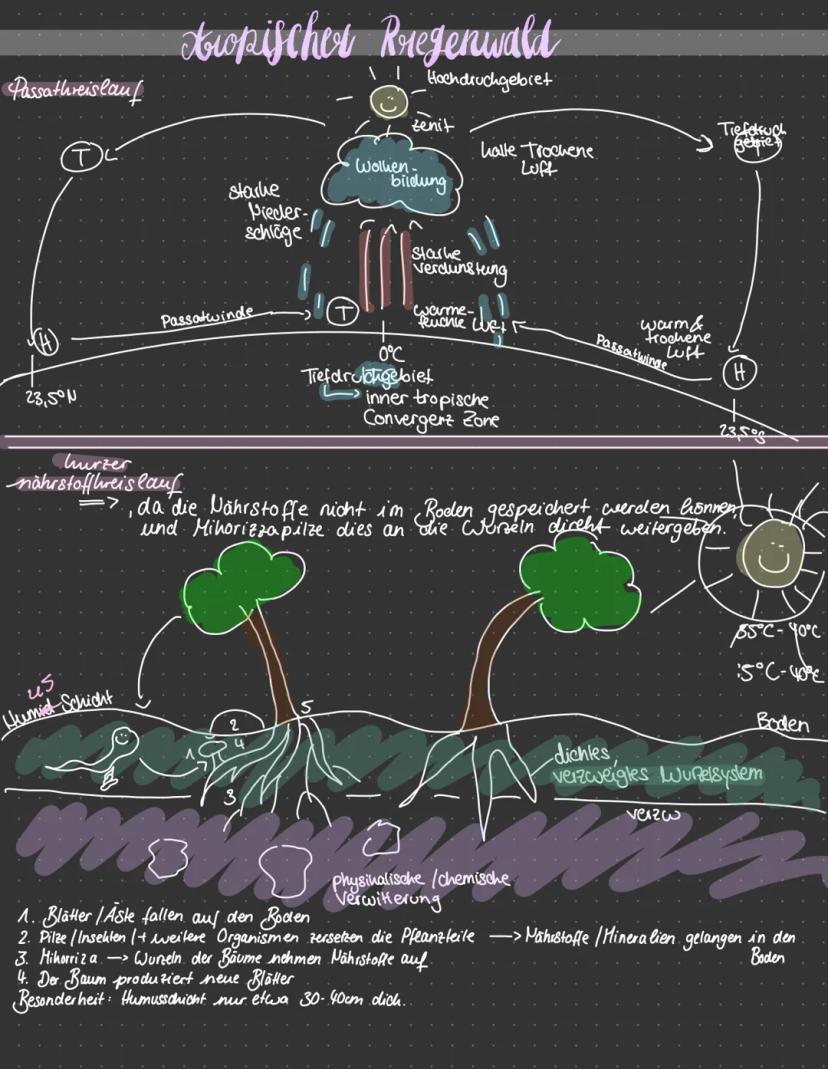 tropischer Regenwald
Passatkreislauf
Hochdruchgebiet
zenit
Tiefdruch
gebiet
T
T
Wolken-
bildung
kalte Trochene
Luft
starke
Nieder-
schläge
starke
verdunstung
T
warme-
feuchte Luft
Passatwinde
H
warm &
trochene
Luft
Passatwinde
H
0°C
23,5°N
Tiefdruckgebiet
inner tropische
Convergenz Zone
23,5°S
kurzer
nährstoffkreislauf
=> , da die Nährstoffe nicht im Boden gespeichert werden können
und Mikorizzapilze dies an die Wurzeln direkt weitergeben.
35°C-40°C
:5°C-40°C
us
Humid-Schicht
5
2
1
4
3
Boden
dichtes,
verzweigtes Wurzelsystem
verzw
physikalische /chemische
Verwitterung
1. Blätter / Äste fallen auf den Boden
2. Pilze / Insekten / + weitere Organismen zersetzen die Pflanzteile —> Nährstoffe / Mineralien gelangen in den
Boden
3. Mikorriza —> Wurzeln der Bäume nehmen Nährstoffe auf
4. Der Baum produziert neue Blätter
Besonderheit: Humusschicht nur etwa 30-40cm dick.